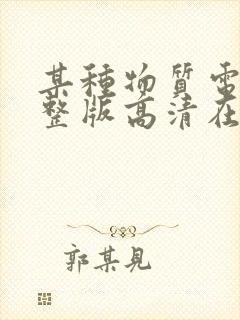 某種物質電
整版高清在
郭某見